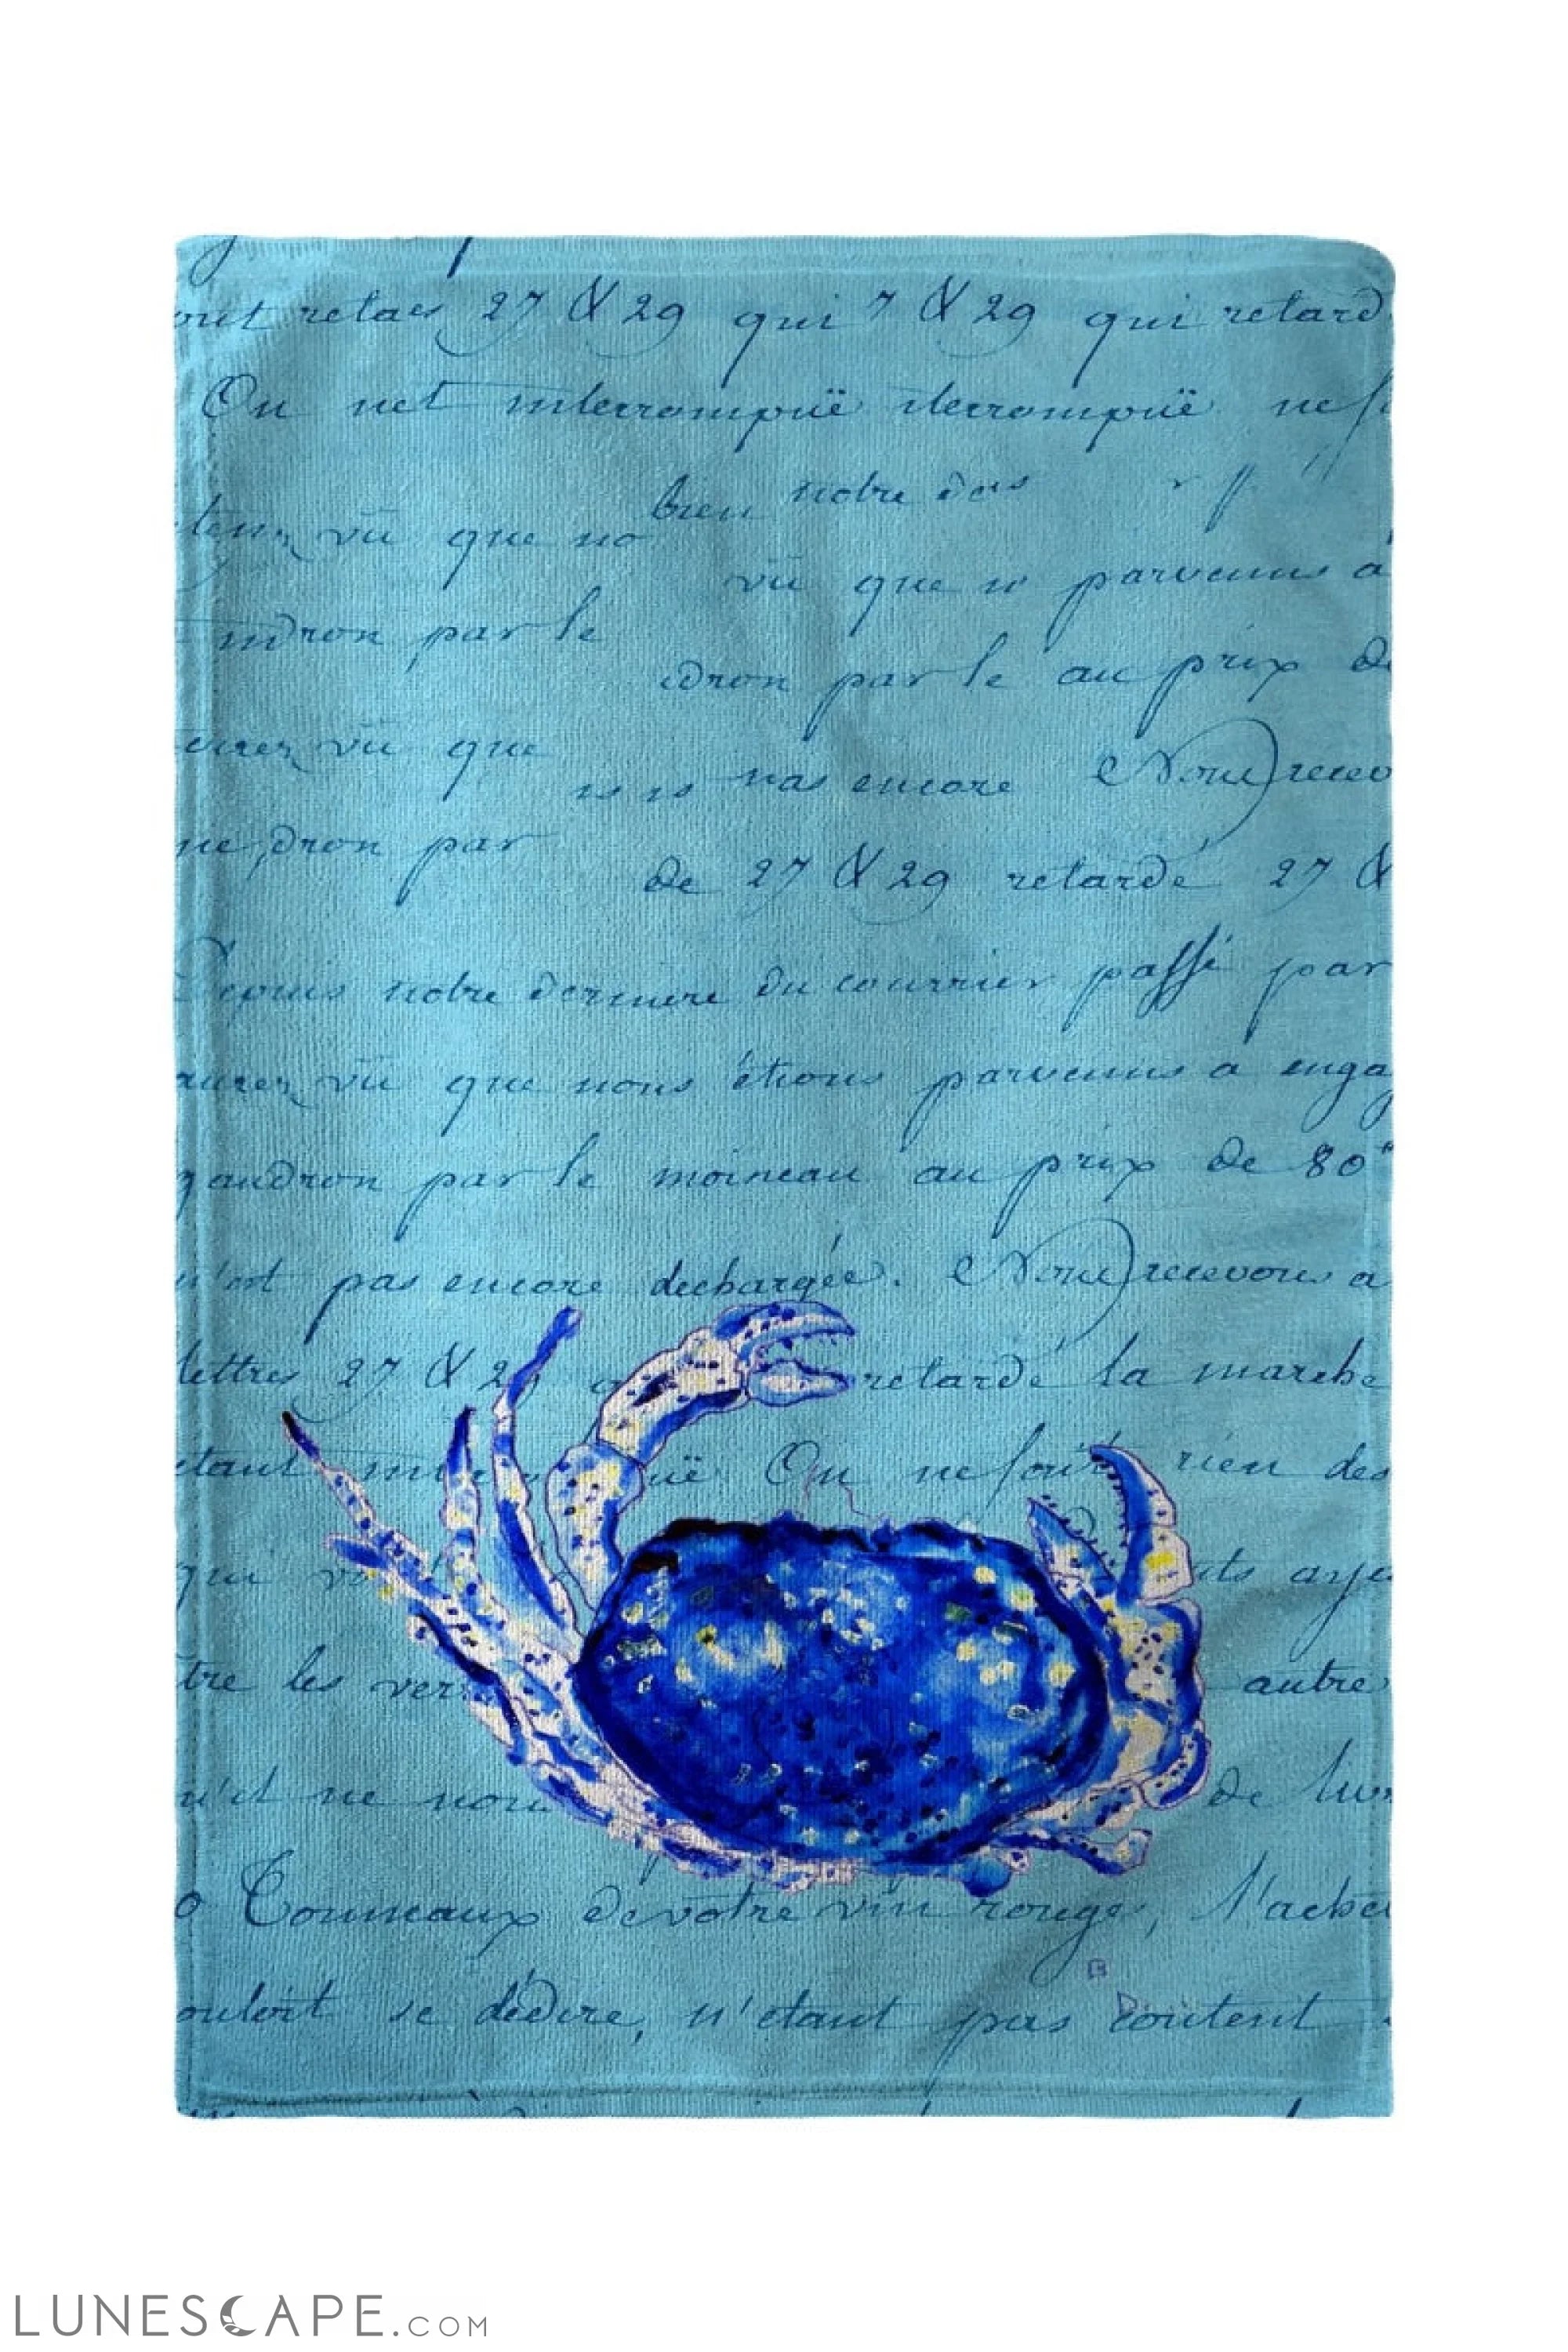 retaes 27 & 29 qui 7 & 29 qui retard
On net interrompuë iterrompuë
bien notre
vû que no
vû que parvenus à
ndron par le
dron par le au prix de
vû que
pas encore Nous recevo
ne, dron par
de 27 & 29 retardé 27 &
Depuis notre derniere du courrier passé par
aurez vû que nous étions parvenus a engag
gaudron par le moineau au prix de 80
n'ont pas encore dechargée. Nous recevons a
lettres 27 & 2 retardé la marche
etant uë On ne sout rien des
qui
tre les ver autre
ne nous de
Tonneaux de votre vin rouge, l'achet
ouloit se dédire, n'etant pas contents
LUNESCAPE.COM